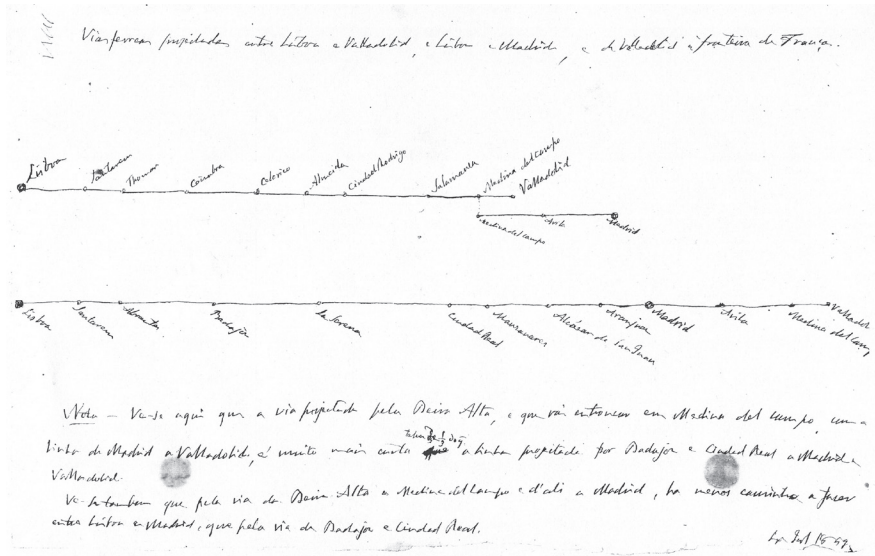 Vias ferreas projectadas entre Lisboa e Valladolid, e Lisboa e Madrid, e de Valladolid á fronteira de França.
Lisboa Santarem Thomar Coimbra Celorico Almeida Ciudad Rodrigo Salamanca Medina del Campo Valladolid
Medina del Campo Avila Madrid
Lisboa Santarem Abrantes Badajoz La Serena Ciudad Real Manzanares Alcázar de San Juan Aranjuez Madrid Avila Medina del Camp Valladol
Nota — Ve-se aqui que a via projectada pela Beira Alta, e que vai entroncar em Medina del Campo, com a
linha de Madrid a Valladolid, é muito mais curta a linha projectada por Badajoz e Ciudad Real a Madrid e
Valladolid.
Ve-se tambem que pela via da Beira Alta a Medina del Campo e d'ali a Madrid, ha menos caminho a fazer
entre Lisboa e Madrid, que pela via de Badajoz e Ciudad Real.